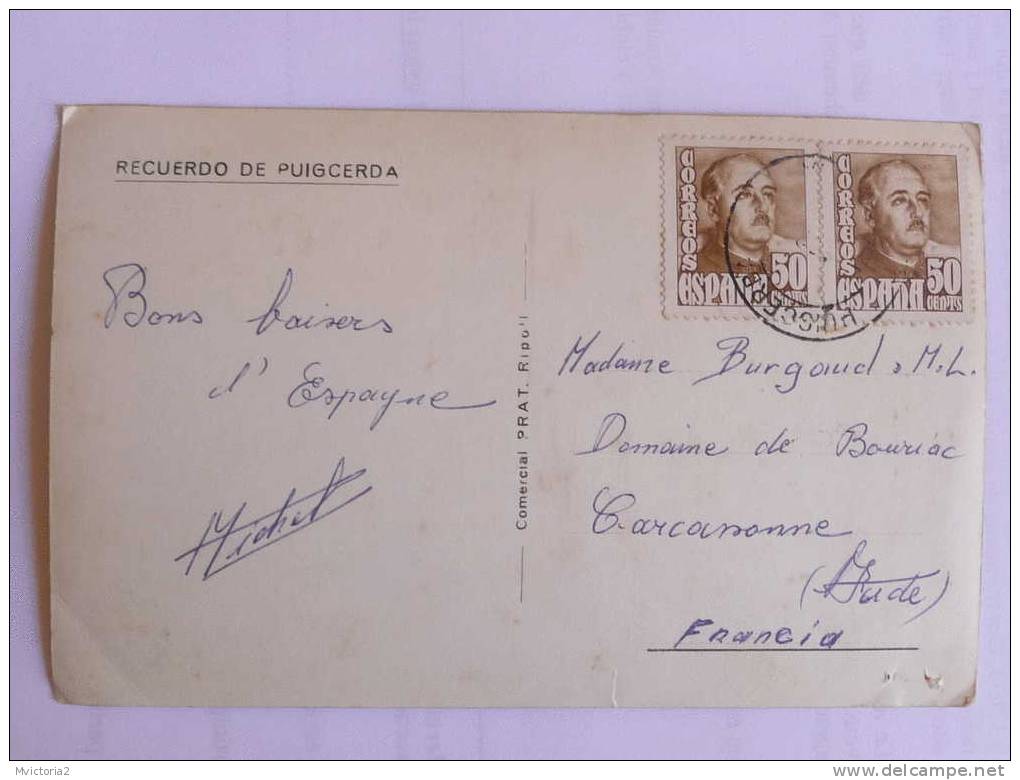 RECUERDO DE PUIGCERDA
Bons baisers
d'Espagne
Michel
Comercial PRAT. Ripoll
CORREOS
ESPAÑA
50
CENTS
CORREOS
ESPAÑA
50
CENTS
PUIGCERDA
Madame Burgaud M.L.
Domaine de Bouriac
Carcassonne
(Aude)
Francia
Mvictoria2
delcampe.net